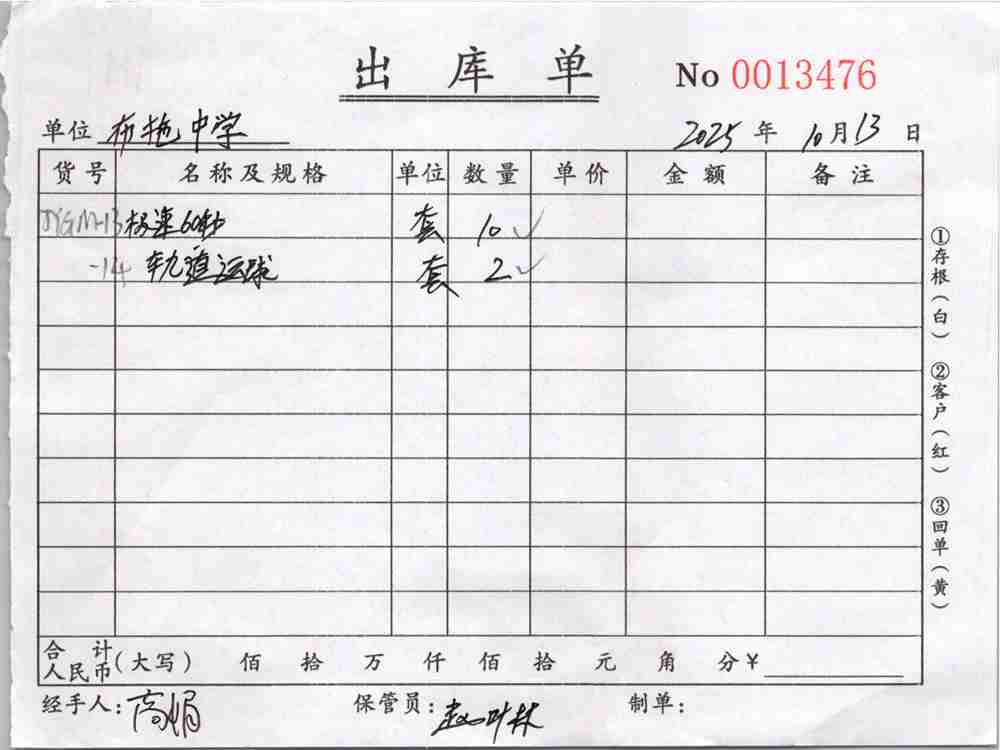 出库单 No 0013476
单位 布拖中学 2025年10月13日
货号 名称及规格 单位 数量 单价 金额 备注
JYGM-13 极速60秒 套 10 ✓
-14 轨道运球 套 2 ✓
合计人民币(大写) 佰 拾 万 仟 佰 拾 元 角 分¥
经手人:高娟 保管员:赵叶林 制单:
①存根(白) ②客户(红) ③回单(黄)